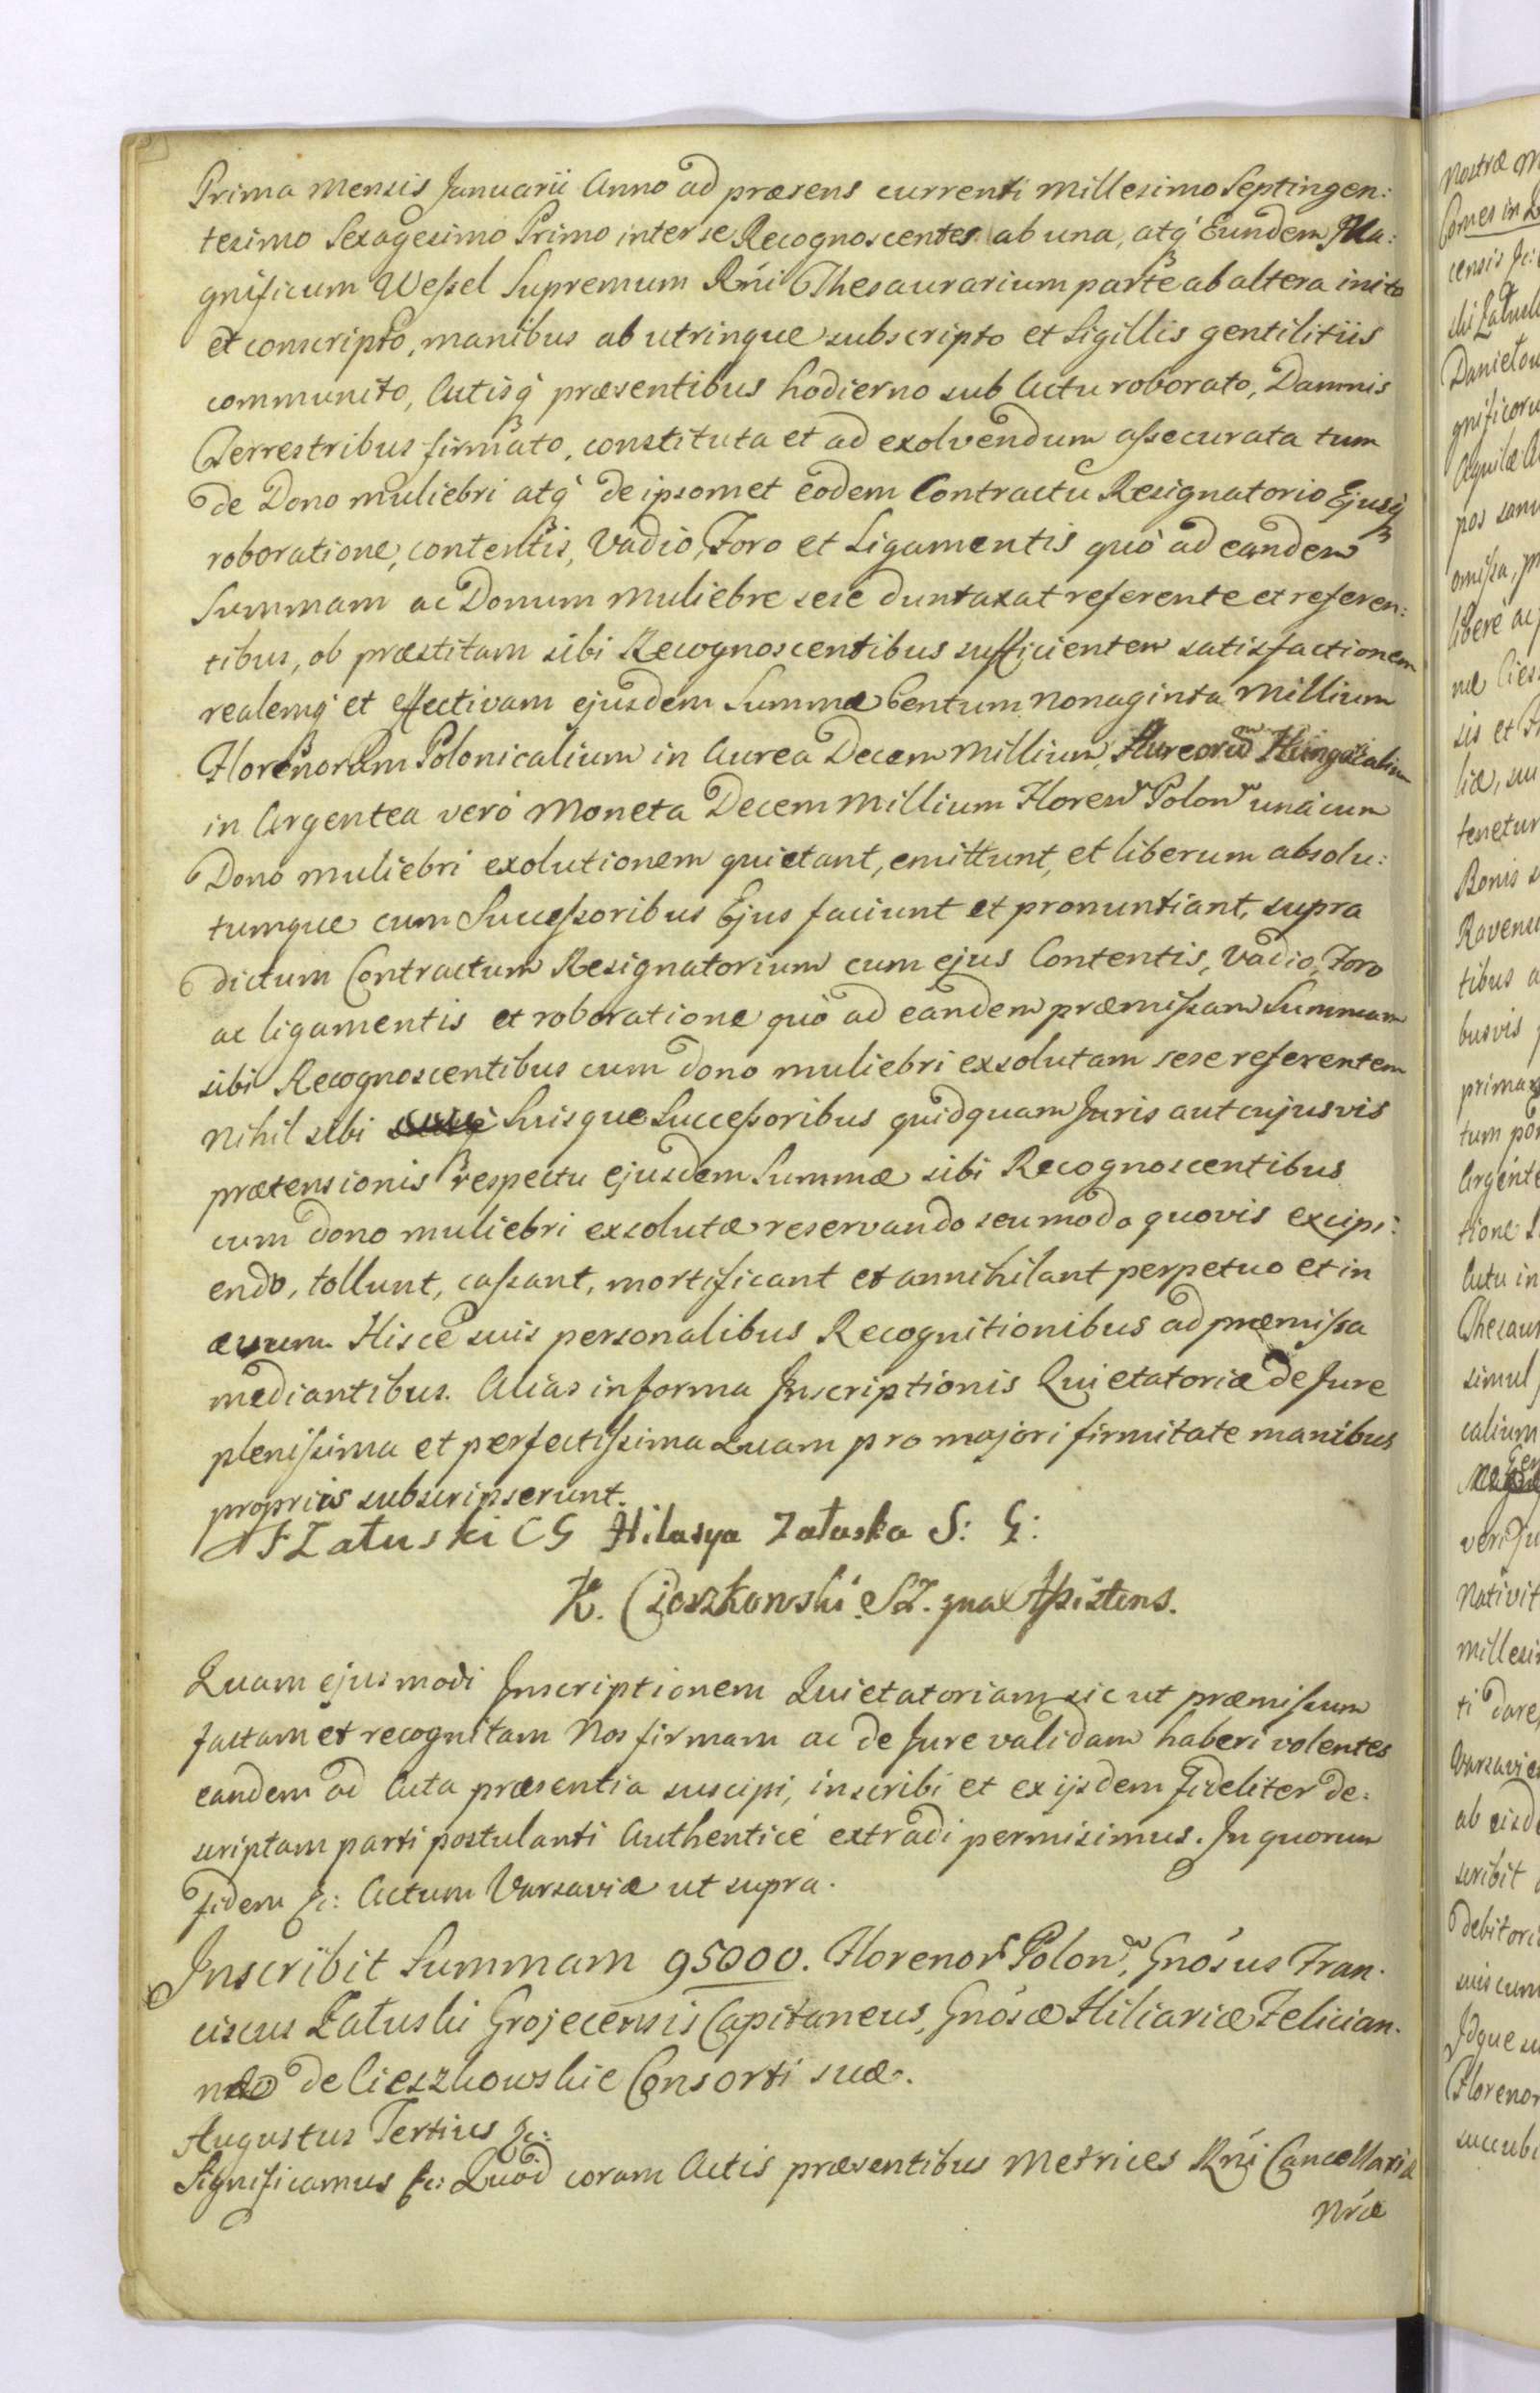 Prima Mensis Januarii Anno ad præsens currenti Millesimo Septingen:
tesimo Sexagesimo Primo inter se Recognoscentes ab una, atq́ Eundem Ma:
gnificum Weſsel Supremum Rńi Thesaurarium parte ab altera inito
et conscripto, manibus ab utrinque subscripto et Sigillis gentilitiis
communito, Actisq́ præsentibus hodierno sub Actu roborato, Damnis
Terrestribus firmato, constituta et ad exolvendum aſsecurata tum
de Dono muliebri atq́ de ipsomet eodem Contractu Resignatorio Ejusq́
roboratione, contentis, Vadio, Foro et Ligamentis quò ad eandem
Summam ac Donum Muliebre sese duntaxat referente et referen:
tibus, ob præstitam sibi Recognoscentibus sufficientem satisfactionem
realemq́ et effectivam ejusdem Summæ Centum Nonaginta Millium
Florenorum Polonicalium in Aurea Decem Millium, Aureorum Hungaricalium
in Argentea verò Moneta Decem Millium Floren Polon unà cum
Dono muliebri exolutionem quietant, emittunt, et liberum absolu:
tumque cum Succeſsoribus Ejus faciunt et pronuntiant, supra
dictum Contractum Resignatorium cum ejus Contentis, Vadio, Foro
ac ligamentis et roboratione quò ad eandem præmiſsam Summam
sibi Recognoscentibus cum dono muliebri exsolutam sese referentem
Nihil sibi Suisque Succeſsoribus quidquam Juris aut cujusvis
prætensionis respectu ejusdem Summæ sibi Recognoscentibus
cum dono muliebri exsolutæ reservando seu modo quovis excipi:
endo, tollunt, caſsant, mortificant et annihilant perpetuo et in
ævum. Hisce suis personalibus Recognitionibus ad præmiſsa
mediantibus. Alias in forma Inscriptionis Quietatoriæ de Jure
pleniſsima et perfectiſsima Quam pro majori firmitate manibus
propriis subscripserunt.
F Załuski CG Hilarya Załuska S: G:
K. Cieszkowski SZ. qua Aſsistens.
Quam ejusmodi Inscriptionem Quietatoriam sic ut præmiſsum
factam et recognitam Nos firmam ac de Jure validam haberi volentes
eandem ad Acta præsentia suscipi, inscribi et ex ijsdem fideliter de:
scriptam parti postulanti Authenticè extradi permisimus. In quorum
fidem &c: Actum Varsaviæ ut supra.
Inscribit Summam 95000. Florenor Polon, Gńosus Fran:
ciscus Załuski Grojecensis Capitaneus, Gńosæ Hilariæ Felician:
næ de Cieszkowskie Consorti suæ.
Augustus Tertius &c:
Significamus &c: Quod coram Actis præsentibus Metrices Rńi Cancellariæ
Nŕæ
Nostræ M
Comes in
censis &c:
ski Załusk
Danielow
gnificoru
Aquilæ A
pos sanu
omiſsa, p
liberè ac
næ Cies
sis et
liæ, su
tenetur
Bonis s
Ravens
tibus a
busvis
primar
tum po
Argente
tione S
Actu in
Thesaur
simul
calium
veri Ju
Nativit
Millesi
ti dare
Varsavie
ab eisd
scribit
debitori
suis cum
Idque su
Florenor
succubi